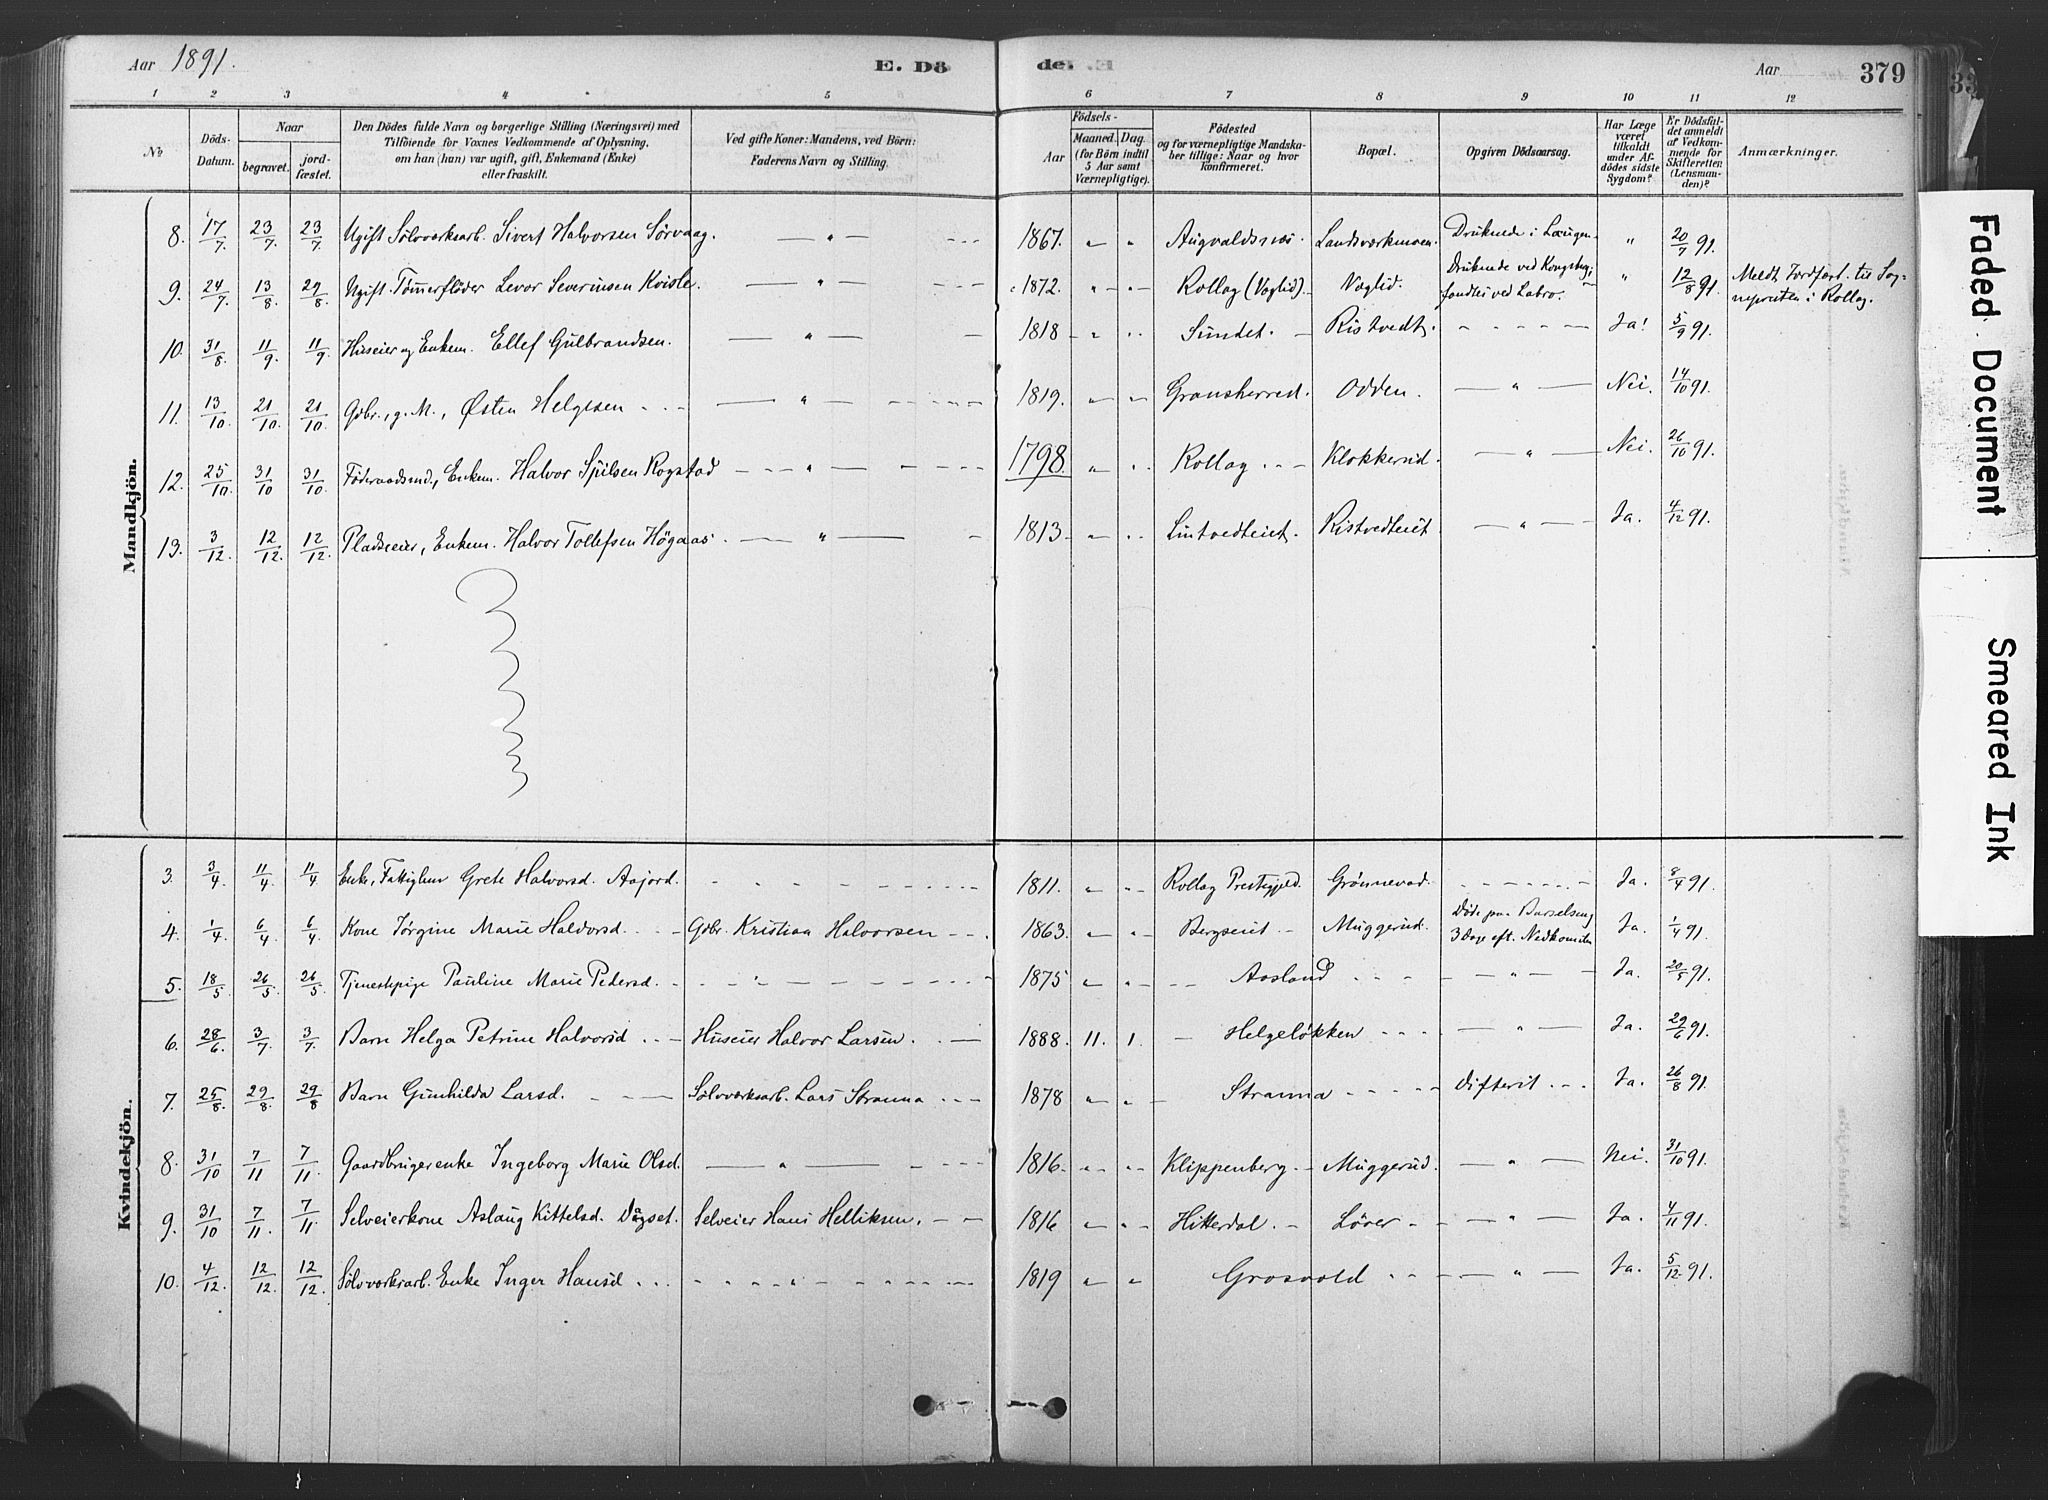 Aar 1891. E. Dö de. Aar 379
1 2 3 4 5 6 7 8 9 10 11 12
No
Döds-Datum.
Naar
begravet.
jord-fæstet.
Den Dödes fulde Navn og borgerlige Stilling (Næringsvei) med
Tilföiende for Voxnes Vedkommende af Oplysning,
om han (hun) var ugift, gift, Enkemand (Enke)
eller fraskilt.
Ved gifte Koner: Mandens, ved Börn:
Faderens Navn og Stilling.
Födsels-
Aar
Maaned. Dag.
(for Börn indtil
5 Aar samt
Værnepligtige).
Födested
og for værnepligtige Mandska-
ber tillige: Naar og hvor
konfirmeret.
Bopæl.
Opgiven Dödsaarsag.
Har Læge
været
tilkaldt
under Af-
dödes sidste
Sygdom?
Er Dödsfal-
det anmeldt
af Vedkom-
mende for
Skifteretten
(Lensman-
den)?
Anmærkninger.
Mandkjön.
8. 17/7. 23/7. 23/7. Ugift Sølvverksarb. Sivert Halvorsen Sørvaag. — " — 1867. " " Augvaldsnæs Landsværkmoen. Druknede i Laugen. " 20/7 91.
9. 24/7. 13/8. 29/8. Ugift Tømmerfløder Levor Severinsen Kvisle. — " — 1872. " " Rollag (Væglid). Væglid. Druknede ved Kongsberg, fandtes ved Labro. " 12/8 91. Meldt Jordfæst. til Sog-
nepresten i Rollag.
10. 31/8. 11/9. 11/9. Huseier og Enkem. Ellef Gulbrandsen. — " — 1818 " " Sundet. Ristvedt. - - - Ja! 5/9 91.
11. 13/10. 21/10. 21/10. Gdbr., g. M., Østen Helgesen — " — 1819. " " Gransherred. Odden. — " — Nei. 14/10 91.
12. 25/10. 31/10. 31/10. Føderaadsmd., Enkem. Halvor Spilsen Rogstad — " — 1798 " " Rollag Klokkerud. — " — Nei. 26/10 91.
13. 3/12. 12/12. 12/12. Pladseier, Enkem. Halvor Tollefsen Högaas. — " — 1813. " " Lintvedteiet. Ristvedteiet — " — Ja. 4/12 91.
Kvindekjön.
3. 3/4. 11/4. 11/4. Enke, Fattiglem Grete Halvorsd. Aajord. - - - 1811. " " Rollag Prestegjeld. Grönnevad. - - - Ja. 8/4 91.
4. 1/4. 6/4. 6/4. Kone Jørgine Marie Haldorsd. Gdbr. Kristian Halvorsen 1863. " " Bergseiet Muggerud. Døde paa Barselseng 3 Dage eft. Nedkomsten Ja. 1/4 91.
5. 18/5. 26/5. 26/5. Tjenestepige Pauline Marie Pedersd. - " - 1875 " " Aasland — " — Ja. 20/5 91.
6. 28/6. 3/7. 3/7. Barn Helga Petrine Halvorsd Huseier Halvor Larsen. 1888. 11. 1. Helgeløkken — " — Ja. 29/6 91.
7. 25/8. 29/8. 29/8 Barn Gunhilda Larsd. Sølvværksarb. Lars Stranna 1878 " " Stranna Difterit Ja. 26/8 91.
8. 31/10 7/11. 7/11. Gaardbrugerenke Ingeborg Marie Olsd. — " — 1816. " " Klippenberg Muggerud. — " — Nei. 31/10 91.
9. 31/10 7/11. 7/11. Selveierkone Aslaug Kittelsd. Dagset. Selveier Hans Helliksen. 1816 " " Hitterdal. Lörer — " — Ja. 4/11 91.
10. 4/12. 12/12. 12/12. Sølvværksarb. Enke Inger Hansd - " - 1819 " " Grosvold — " — Ja. 5/12 91.
Faded Document
Smeared Ink